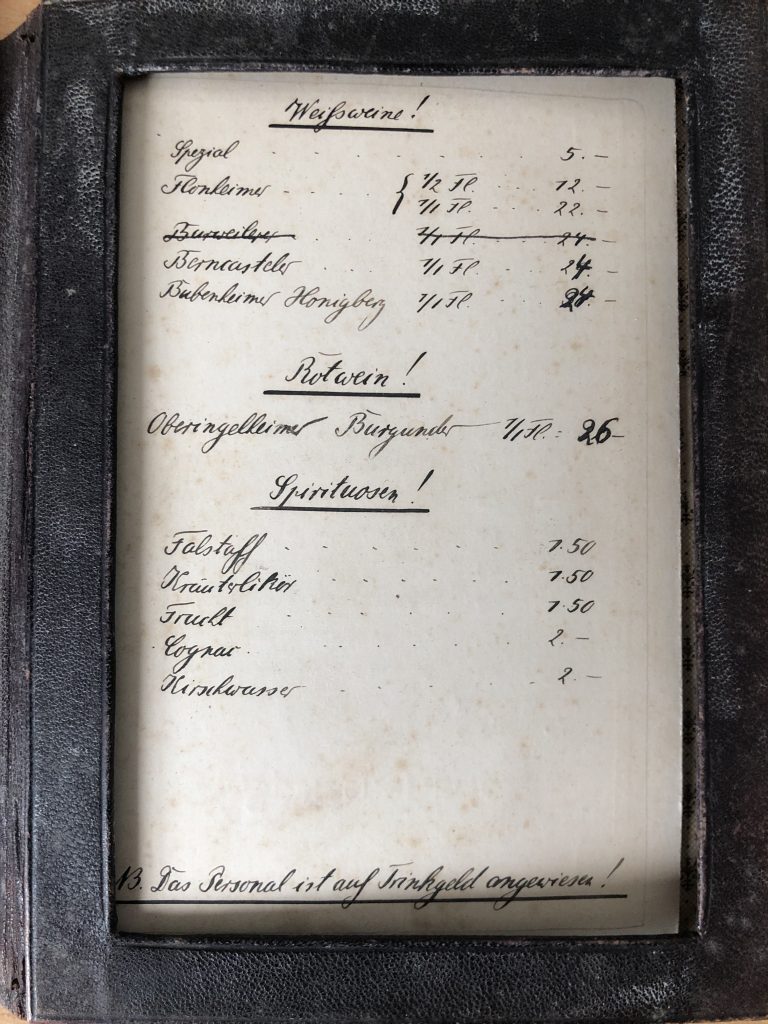 Weißweine!
Spezial . . . . . . . 5.—
Flonheimer . . . { 1/2 Fl. . . . 12.—
1/1 Fl. . . . 22.—
Burweilerer . . 1/1 Fl. . . . 24.—
Berncasteler . . 1/1 Fl. . . . 24.—
Bubenheimer Honigberg 1/1 Fl. . . . 24.—
Rotwein!
Oberingelheimer Burgunder — 1/1 Fl. = 26—
Spirituosen!
Falstaff . . . . . . . 1.50
Kräuterlikör . . . . . . 1.50
Frucht . . . . . . . 1.50
Cognac . . . . . . . 2.—
Kirschwasser . . . . . . 2.—
NB. Das Personal ist auf Trinkgeld angewiesen!